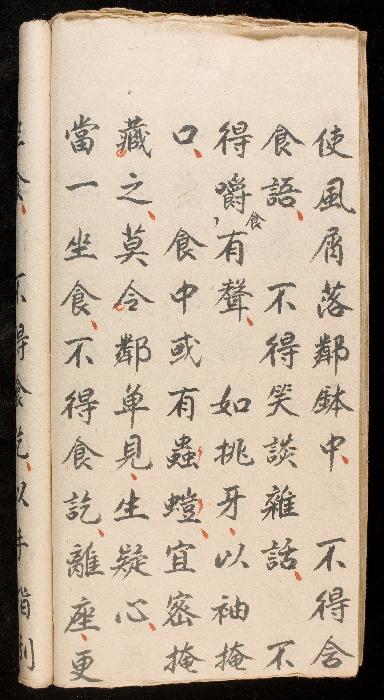 使風屑落鄰鉢中、 不得含
食語、 不得笑談雜話、 不
得嚼食有聲、 如挑牙、以袖掩
口、 食中或有蟲螘、宜密掩
藏之、莫令鄰單見、生疑心、
當一坐食、不得食訖、離座、更